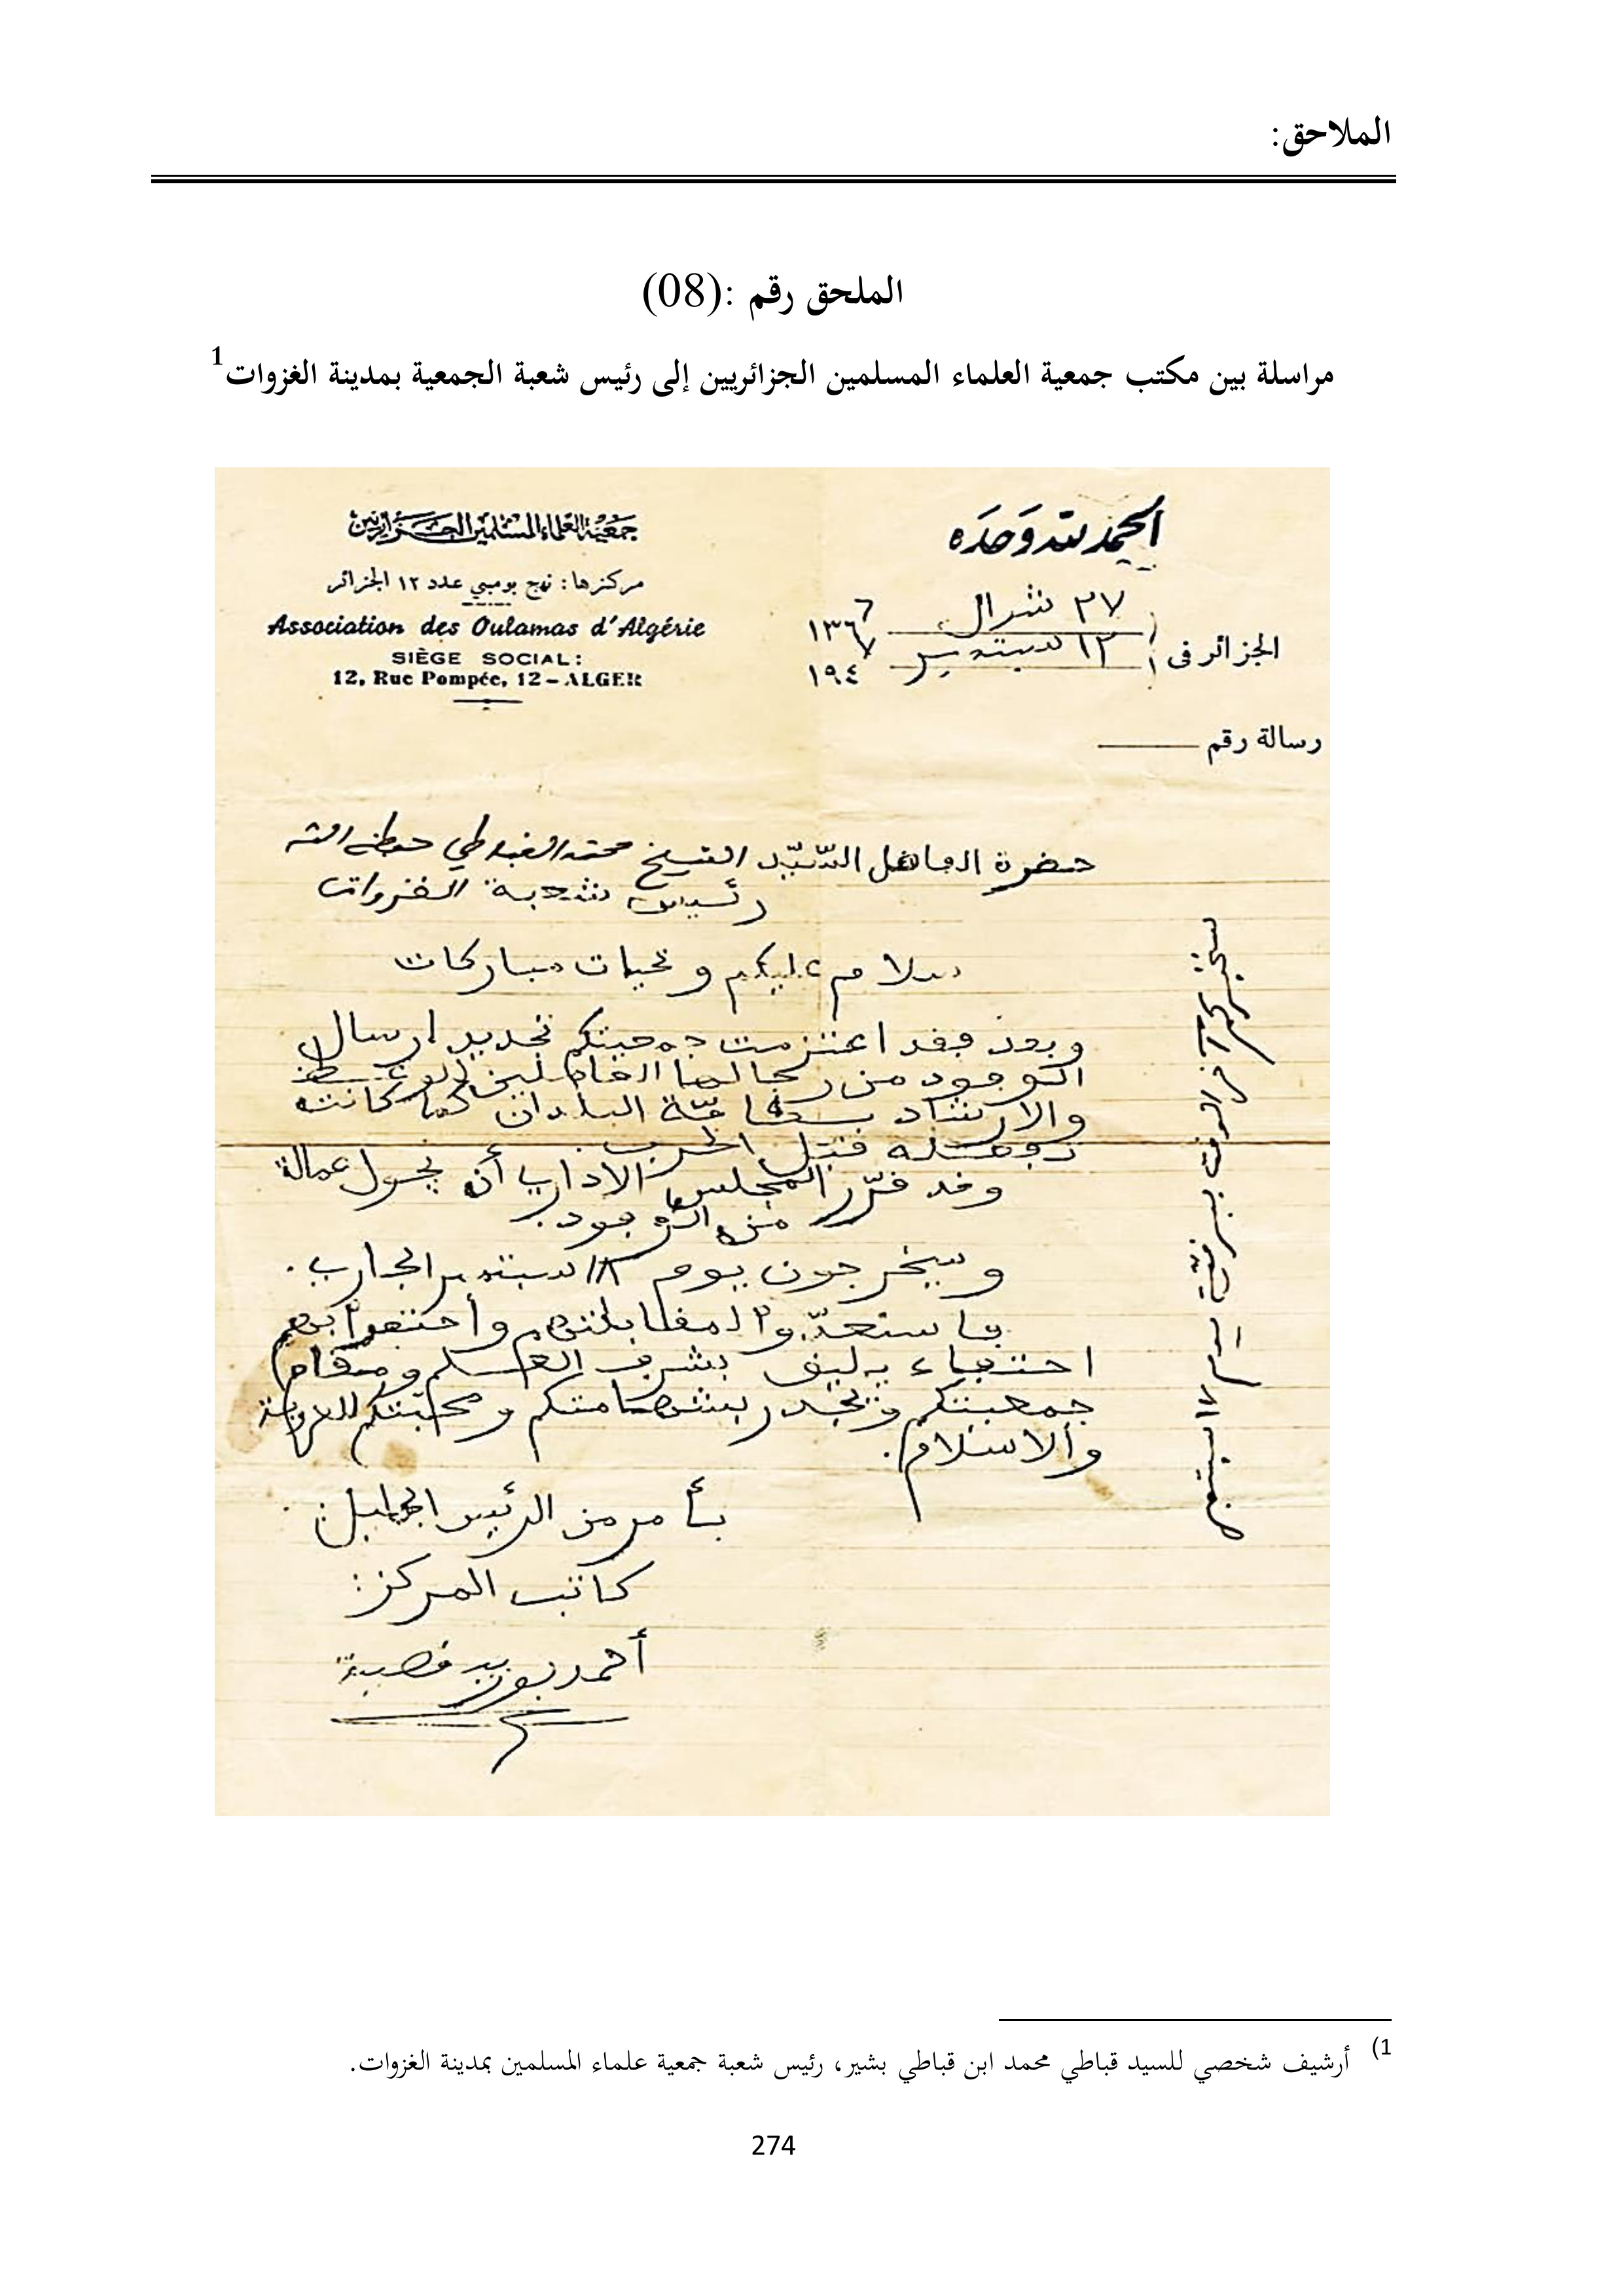 الملاحق:
الملحق رقم :(08)
مراسلة بين مكتب جمعية العلماء المسلمين الجزائريين إلى رئيس شعبة الجمعية بمدينة الغزوات1
الحمد لله وحده
جمعية العلماء المسلمين الجزائريين
مركزها: نهج بومبي عدد ١٢ الجزائر
Association des Oulamas d'Algérie
SIÈGE SOCIAL:
12, Rue Pompée, 12 – ALGER
الجزائر في ٢٧ شوال ١٣٦٦
١٢ سبتمبر ١٩٤٧
رسالة رقم
حضرة الفاضل السّيّد الشيخ محمد القباطي حفظه الله
رئيس شعبة الغزوات
سلام عليكم و تحيات مباركات
وبعد فقد اعتزمت جمعيتكم تجديد ارسال
الوفود من رجالها العاملين للوعظ
والارشاد بكافّة البلدان كما كانت
تفعله قبل الحرب.
وقد قرّر المجلس الاداري أن عمالة
من الوفود.
وسيخرجون يوم سبتمبر الجاري.
فاستعدّوا لمقابلتهم وأحتفوا بهم
احتفاء يليق بشرف العلم ومقام
جمعيتكم و بشهامتكم ومحبتكم للعروبة
والاسلام.
بأمر من الرئيس الجليل:
كاتب المركز:
أحمد بوزيد قصيبة
سبتمبر
1) أرشيف شخصي للسيد قباطي محمد ابن قباطي بشير، رئيس شعبة جمعية علماء المسلمين بمدينة الغزوات.
274